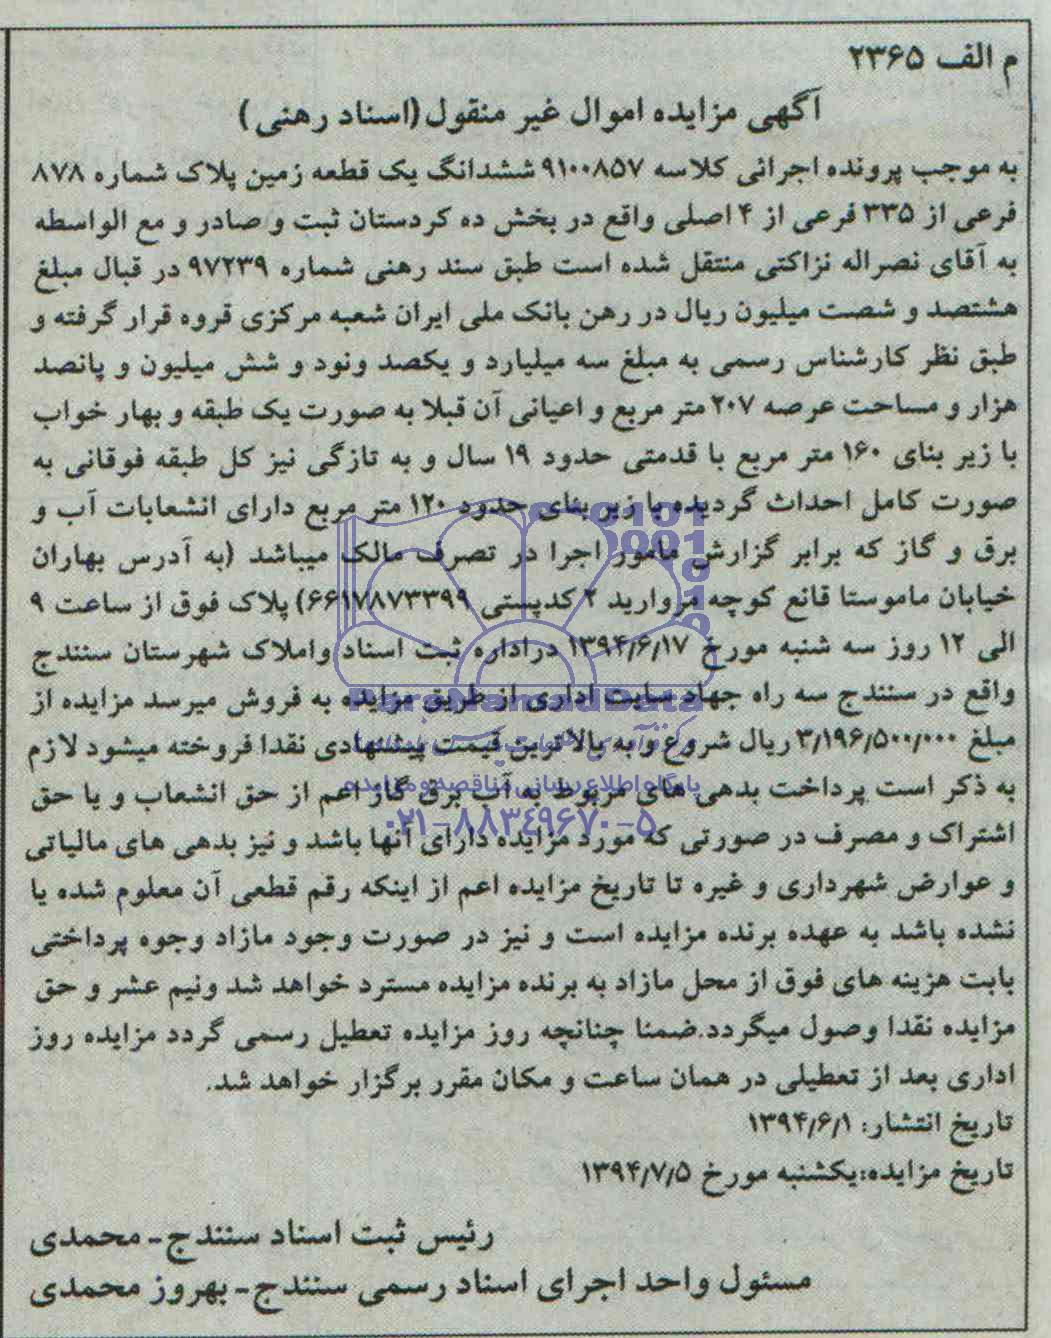 م الف ۲۳۶۵
آگهی مزایده اموال غیر منقول (اسناد رهنی)
به موجب پرونده اجرائی کلاسه ۹۱۰۰۸۵۷ ششدانگ یک قطعه زمین پلاک شماره ۸۷۸
فرعی از ۳۳۵ فرعی از ۴ اصلی واقع در بخش ده کردستان ثبت و صادر و مع الواسطه
به آقای نصراله نزاکتی منتقل شده است طبق سند رهنی شماره ۹۷۲۳۹ در قبال مبلغ
هشتصد و شصت میلیون ریال در رهن بانک ملی ایران شعبه مرکزی قروه قرار گرفته و
طبق نظر کارشناس رسمی به مبلغ سه میلیارد و یکصد ونود و شش میلیون و پانصد
هزار و مساحت عرصه ۲۰۷ متر مربع و اعیانی آن قبلا به صورت یک طبقه و بهار خواب
با زیر بنای ۱۶۰ متر مربع با قدمتی حدود ۱۹ سال و به تازگی نیز کل طبقه فوقانی به
صورت کامل احداث گردیده با زیر بنای حدود ۱۲۰ متر مربع دارای انشعابات آب و
برق و گاز که برابر گزارش مامور اجرا در تصرف مالک میباشد (به آدرس بهاران
خیابان ماموستا قانع کوچه مروارید ۲ کدپستی ۶۶۱۷۸۷۳۳۹۹) پلاک فوق از ساعت ۹
الی ۱۲ روز سه شنبه مورخ ۱۳۹۴/۶/۱۷ دراداره ثبت اسناد واملاک شهرستان سنندج
واقع در سنندج سه راه جهاد سایت اداری از طریق مزایده به فروش میرسد مزایده از
مبلغ ۳/۱۹۶/۵۰۰/۰۰۰ ریال شروع و به بالاترین قیمت پیشنهادی نقدا فروخته میشود لازم
به ذکر است پرداخت بدهی های مربوط به آب برق گاز اعم از حق انشعاب و یا حق
اشتراک و مصرف در صورتی که مورد مزایده دارای آنها باشد و نیز بدهی های مالیاتی
و عوارض شهرداری و غیره تا تاریخ مزایده اعم از اینکه رقم قطعی آن معلوم شده یا
نشده باشد به عهده برنده مزایده است و نیز در صورت وجود مازاد وجوه پرداختی
بابت هزینه های فوق از محل مازاد به برنده مزایده مسترد خواهد شد ونیم عشر و حق
مزایده نقدا وصول میگردد.ضمنا چنانچه روز مزایده تعطیل رسمی گردد مزایده روز
اداری بعد از تعطیلی در همان ساعت و مکان مقرر برگزار خواهد شد.
تاریخ انتشار: ۱۳۹۴/۶/۱
تاریخ مزایده:یکشنبه مورخ ۱۳۹۴/۷/۵
رئیس ثبت اسناد سنندج - محمدی
مسئول واحد اجرای اسناد رسمی سنندج - بهروز محمدی
ParsNamadData
پایگاه اطلاع رسانی مناقصه و مزایده
۰۲۱-۸۸۳۴۹۶۷۰-۵